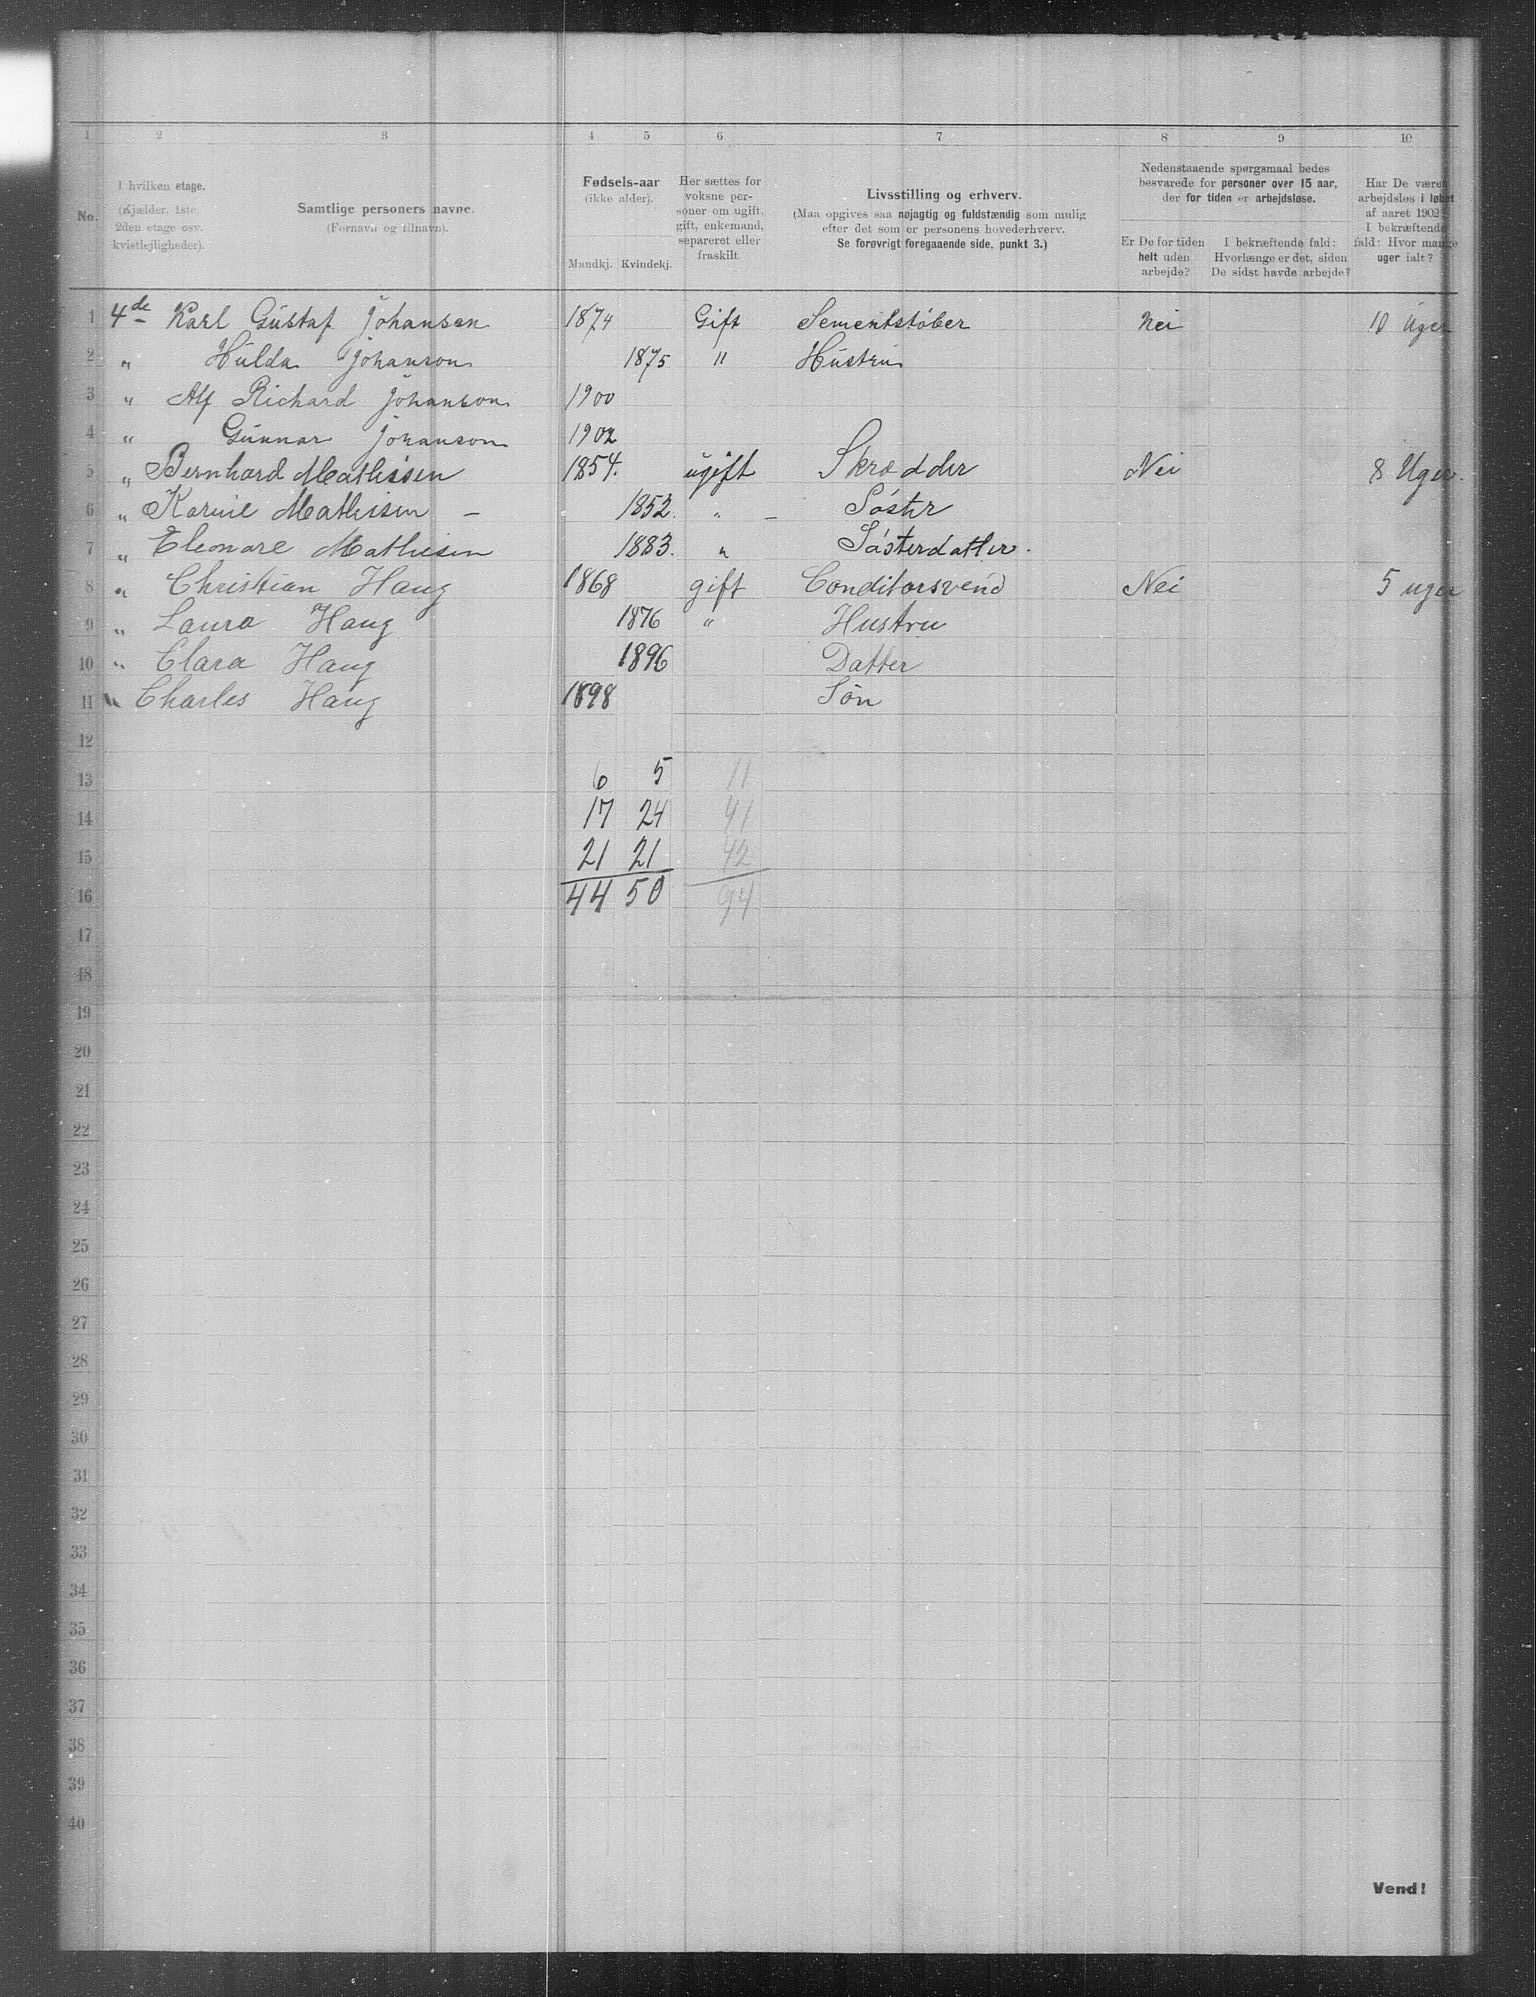 1 2 3 4 5 6 7 8 9 10
No.
I hvilken etage.
(Kjælder, 1ste,
2den etage osv.
kvistlejligheder).
Samtlige personers navne.
(Fornavn og tilnavn).
Fødsels-aar
(ikke alder).
Mandkj. Kvindekj.
Her sættes for
voksne per-
soner om ugift,
gift, enkemand,
separeret eller
fraskilt.
Livsstilling og erhverv.
(Maa opgives saa nøjagtig og fuldstændig som mulig
efter det som er personens hovederhverv.
Se forøvrigt foregaaende side, punkt 3.)
Nedenstaaende spørgsmaal bedes
besvarede for personer over 15 aar,
der for tiden er arbejdsløse.
Er De for tiden
helt uden
arbejde?
I bekræftende fald:
Hvorlænge er det, siden
De sidst havde arbejde?
Har De været
arbejdsløs i løbet
af aaret 1902?
I bekræftende
fald: Hvor mange
uger ialt?
1 4de Karl Gustaf Johansen 1874 Gift Sementstøber Nei 10 Uger
2 " Hulda Johanson 1875 " Hustru
3 " Alf Richard Johanson 1900
4 " Gunnar Johanson 1902
5 " Bernhard Mathisen 1854. ugift Skrædder Nei 8 Uger.
6 " Karine Mathisen – 1852. " – Søster
7 " Eleonare Mathisen 1883. " Søsterdatter.
8 " Christian Haug 1868 gift Conditorsvend Nei 5 uger
9 " Laura Haug 1876 " Hustru
10 " Clara Haug 1896 Datter
11 " Charles Haug 1898 Søn
12
13 6 5 11
14 17 24 41
15 21 21 42
16 44 50 94
17
18
19
20
21
22
23
24
25
26
27
28
29
30
31
32
33
34
35
36
37
38
39
40
Vend!